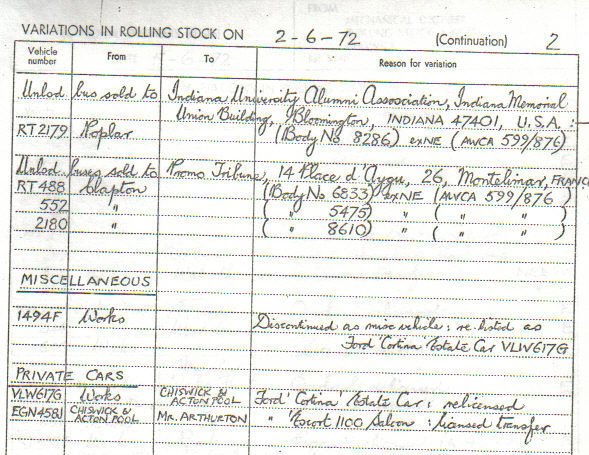 VARIATIONS IN ROLLING STOCK ON 2-6-72 (Continuation) 2
Vehicle number From To Reason for variation
Unlsd bus sold to Indiana University Alumni Association, Indiana Memorial
Union Building, Bloomington, INDIANA 47401, U.S.A. :
RT2179 Poplar (Body No 8286) exNE (AWCA 599/876)
Unlsd buses sold to Promo Tribune, 14 Place d'Aygu, 26, Montelimar, FRANCE
RT488 Clapton (Body No 6833) exNE (AWCA 599/876 )
552 " ( " 5475) " ( " " )
2180 " ( " 8610) " ( " " )
MISCELLANEOUS
1494F Works Discontinued as misc vehicle : re-listed as
Ford 'Cortina' Estate Car VLW617G
PRIVATE CARS
VLW617G Works CHISWICK & ACTON POOL Ford 'Cortina' Estate Car : relicensed
EGN458J CHISWICK & ACTON POOL MR. ARTHURTON " 'Escort 1100 Saloon : licensed transfer